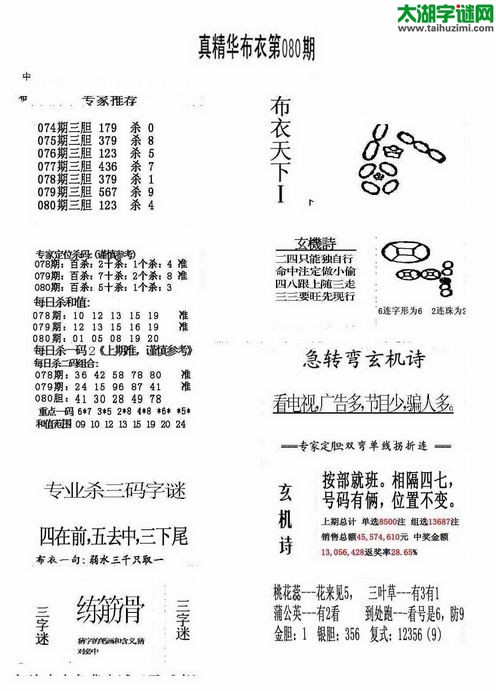 太湖字谜网
www.taihuzimi.com
真精华布衣第080期
中
专家推荐
074期三胆 179 杀 0
075期三胆 379 杀 8
076期三胆 123 杀 5
077期三胆 436 杀 7
078期三胆 379 杀 1
079期三胆 567 杀 9
080期三胆 123 杀 4
布衣天下I
专家定位杀码:(谨慎参考)
078期: 百杀: 2十杀: 1个杀: 4 准
079期: 百杀: 7十杀: 2个杀: 8 准
080期: 百杀: 5十杀: 1个杀: 3
每日杀和值:
078期: 10 12 13 15 19 准
079期: 12 13 15 16 19 准
080期: 01 05 08 19 20
每日杀一码2《上期准, 谨慎参考》
每日杀二码组合:
078期: 36 42 58 78 80 准
079期: 24 15 96 87 41 准
080胆: 41 30 28 49 78
重点一码 6*7 3*5 2*8 4*8 *6* *5*
和值范围 09 10 12 13 15 19 20 24
玄機詩
二四只能独自行
命中注定做小偷
四八跟上随三走
三三要旺先现行
6连字形为6 2连珠为2
急转弯玄机诗
看电视,广告多,节目少,骗人多。
===专家定胆:双弯单线拐折连===
专业杀三码字谜
四在前,五去中,三下尾
布衣一句: 弱水三千只取一
玄机诗
按部就班。相隔四七,
号码有俩, 位置不变。
上期总计 单选8500注 组选13687注
销售总额45,574,610元 中奖金额
13,056,428返奖率28.65%
三字迷
练筋骨
猜字的笔画和含义,猜
对必中
三字迷
桃花蕊---花来见5, 三叶草---有3有1
蒲公英---有2看 到处跑---看号是6, 防9
金胆: 1 银胆: 356 复式: 12356 (9)